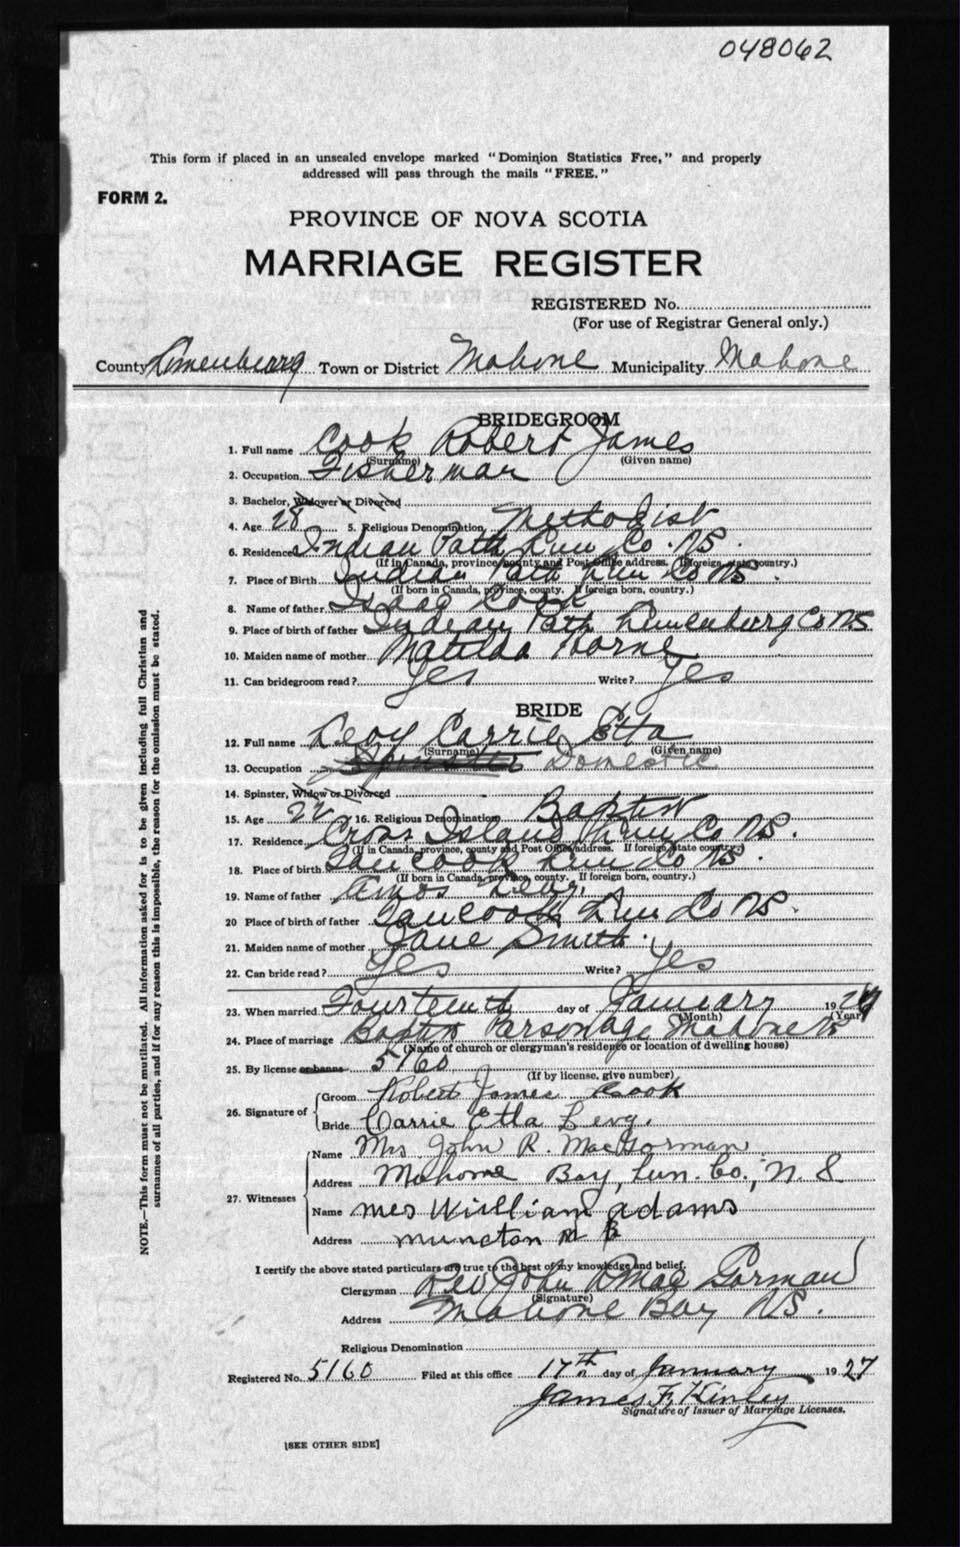 048062
This form if placed in an unsealed envelope marked "Dominion Statistics Free," and properly
addressed will pass through the mails "FREE."
FORM 2.
PROVINCE OF NOVA SCOTIA
MARRIAGE REGISTER
REGISTERED No.
(For use of Registrar General only.)
County Lunenburg Town or District Mahone Municipality Mahone
BRIDEGROOM
1. Full name Cook Robert James
(Surname) (Given name)
2. Occupation Fisherman
3. Bachelor, Widower or Divorced
4. Age 28 5. Religious Denomination Methodist
6. Residence Indian Path Lun Co. NS.
(If in Canada, province, county and Post Office address. If foreign, state country.)
7. Place of Birth Indian Path Lun Co NS.
(If born in Canada, province, county. If foreign born, country.)
8. Name of father Isaac Cook
9. Place of birth of father Indian Path Lunenburg Co NS
10. Maiden name of mother Matilda Horne
11. Can bridegroom read? Yes Write? Yes
BRIDE
12. Full name Levy Carrie Etta
(Surname) (Given name)
13. Occupation Spinster Domestic
14. Spinster, Widow or Divorced
15. Age 22 16. Religious Denomination Baptist
17. Residence Cross Island Lun Co NS.
(If in Canada, province, county and Post Office address. If foreign state country.)
18. Place of birth Tancook Lun Co NS.
(If born in Canada, province, county. If foreign born, country.)
19. Name of father Amos Levy.
20 Place of birth of father Tancook Lun Co NS.
21. Maiden name of mother Jane Smith.
22. Can bride read? Yes Write? Yes
23. When married Fourteenth day of January 19
(Month) (Year)
24. Place of marriage Baptist Parsonage Mahone NS
(Name of church or clergyman's residence or location of dwelling house)
25. By license or banns 5160
(If by license, give number)
26. Signature of Groom Robert James Cook
Bride Carrie Etta Levy.
27. Witnesses Name Mrs. John R. MacGorman
Address Mahone Bay, Lun. Co., N. S
Name mrs William adams
Address muncton N B
I certify the above stated particulars are true to the best of my knowledge and belief.
Clergyman Rev John R Mac Gorman
(Signature)
Address Mahone Bay NS.
Religious Denomination
Registered No. 5160 Filed at this office 17th day of January 1927
James F. Kinley
Signature of Issuer of Marriage Licenses.
[SEE OTHER SIDE]
NOTE.—This form must not be mutilated. All information asked for is to be given including full Christian and
surnames of all parties, and if for any reason this is impossible, the reason for the omission must be stated.